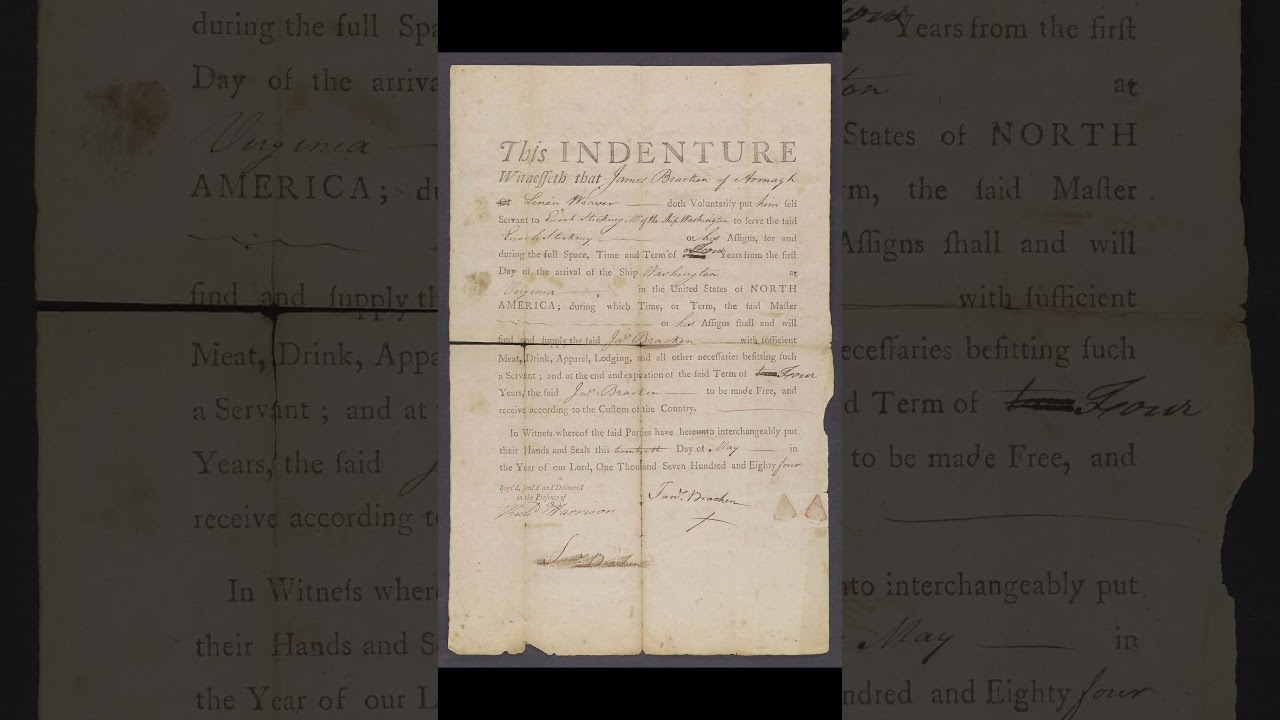 This INDENTURE
Witneſſeth that James Bracken of Armagh
Linen Weaver doth Voluntarily put him ſelf
Servant to Enoch Stickney Mr. of the Ship Washington to ſerve the ſaid
Enoch Stickney or his Aſſigns, for and
during the full Space, Time and Term of Four Years from the firſt
Day of the arrival of the Ship Washington at
Virginia in the United States of NORTH
AMERICA; during which Time, or Term, the ſaid Maſter
or his Aſſigns ſhall and will
find and ſupply the ſaid Jas. Bracken with ſufficient
Meat, Drink, Apparel, Lodging, and all other neceſſaries befitting ſuch
a Servant; and at the end and expiration of the ſaid Term of Four
Years, the ſaid Jas. Bracken to be made Free, and
receive according to the Cuſtom of the Country.
In Witneſs whereof the ſaid Parties have hereunto interchangeably put
their Hands and Seals this twentieth Day of May in
the Year of our Lord, One Thouſand Seven Hundred and Eighty four
Sign'd, ſeal'd and Delivered
in the Preſence of
Harrison
Jams. Bracken
Jams. Bracken